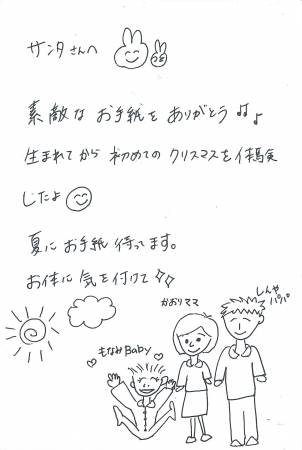 サンタさんへ
素敵な お手紙を ありがとう♫♪
生まれてから 初めての クリスマスを体験
したよ
夏に お手紙 待ってます。
お体に 気を付けて
しんやパパ
かおりママ
もなみBaby